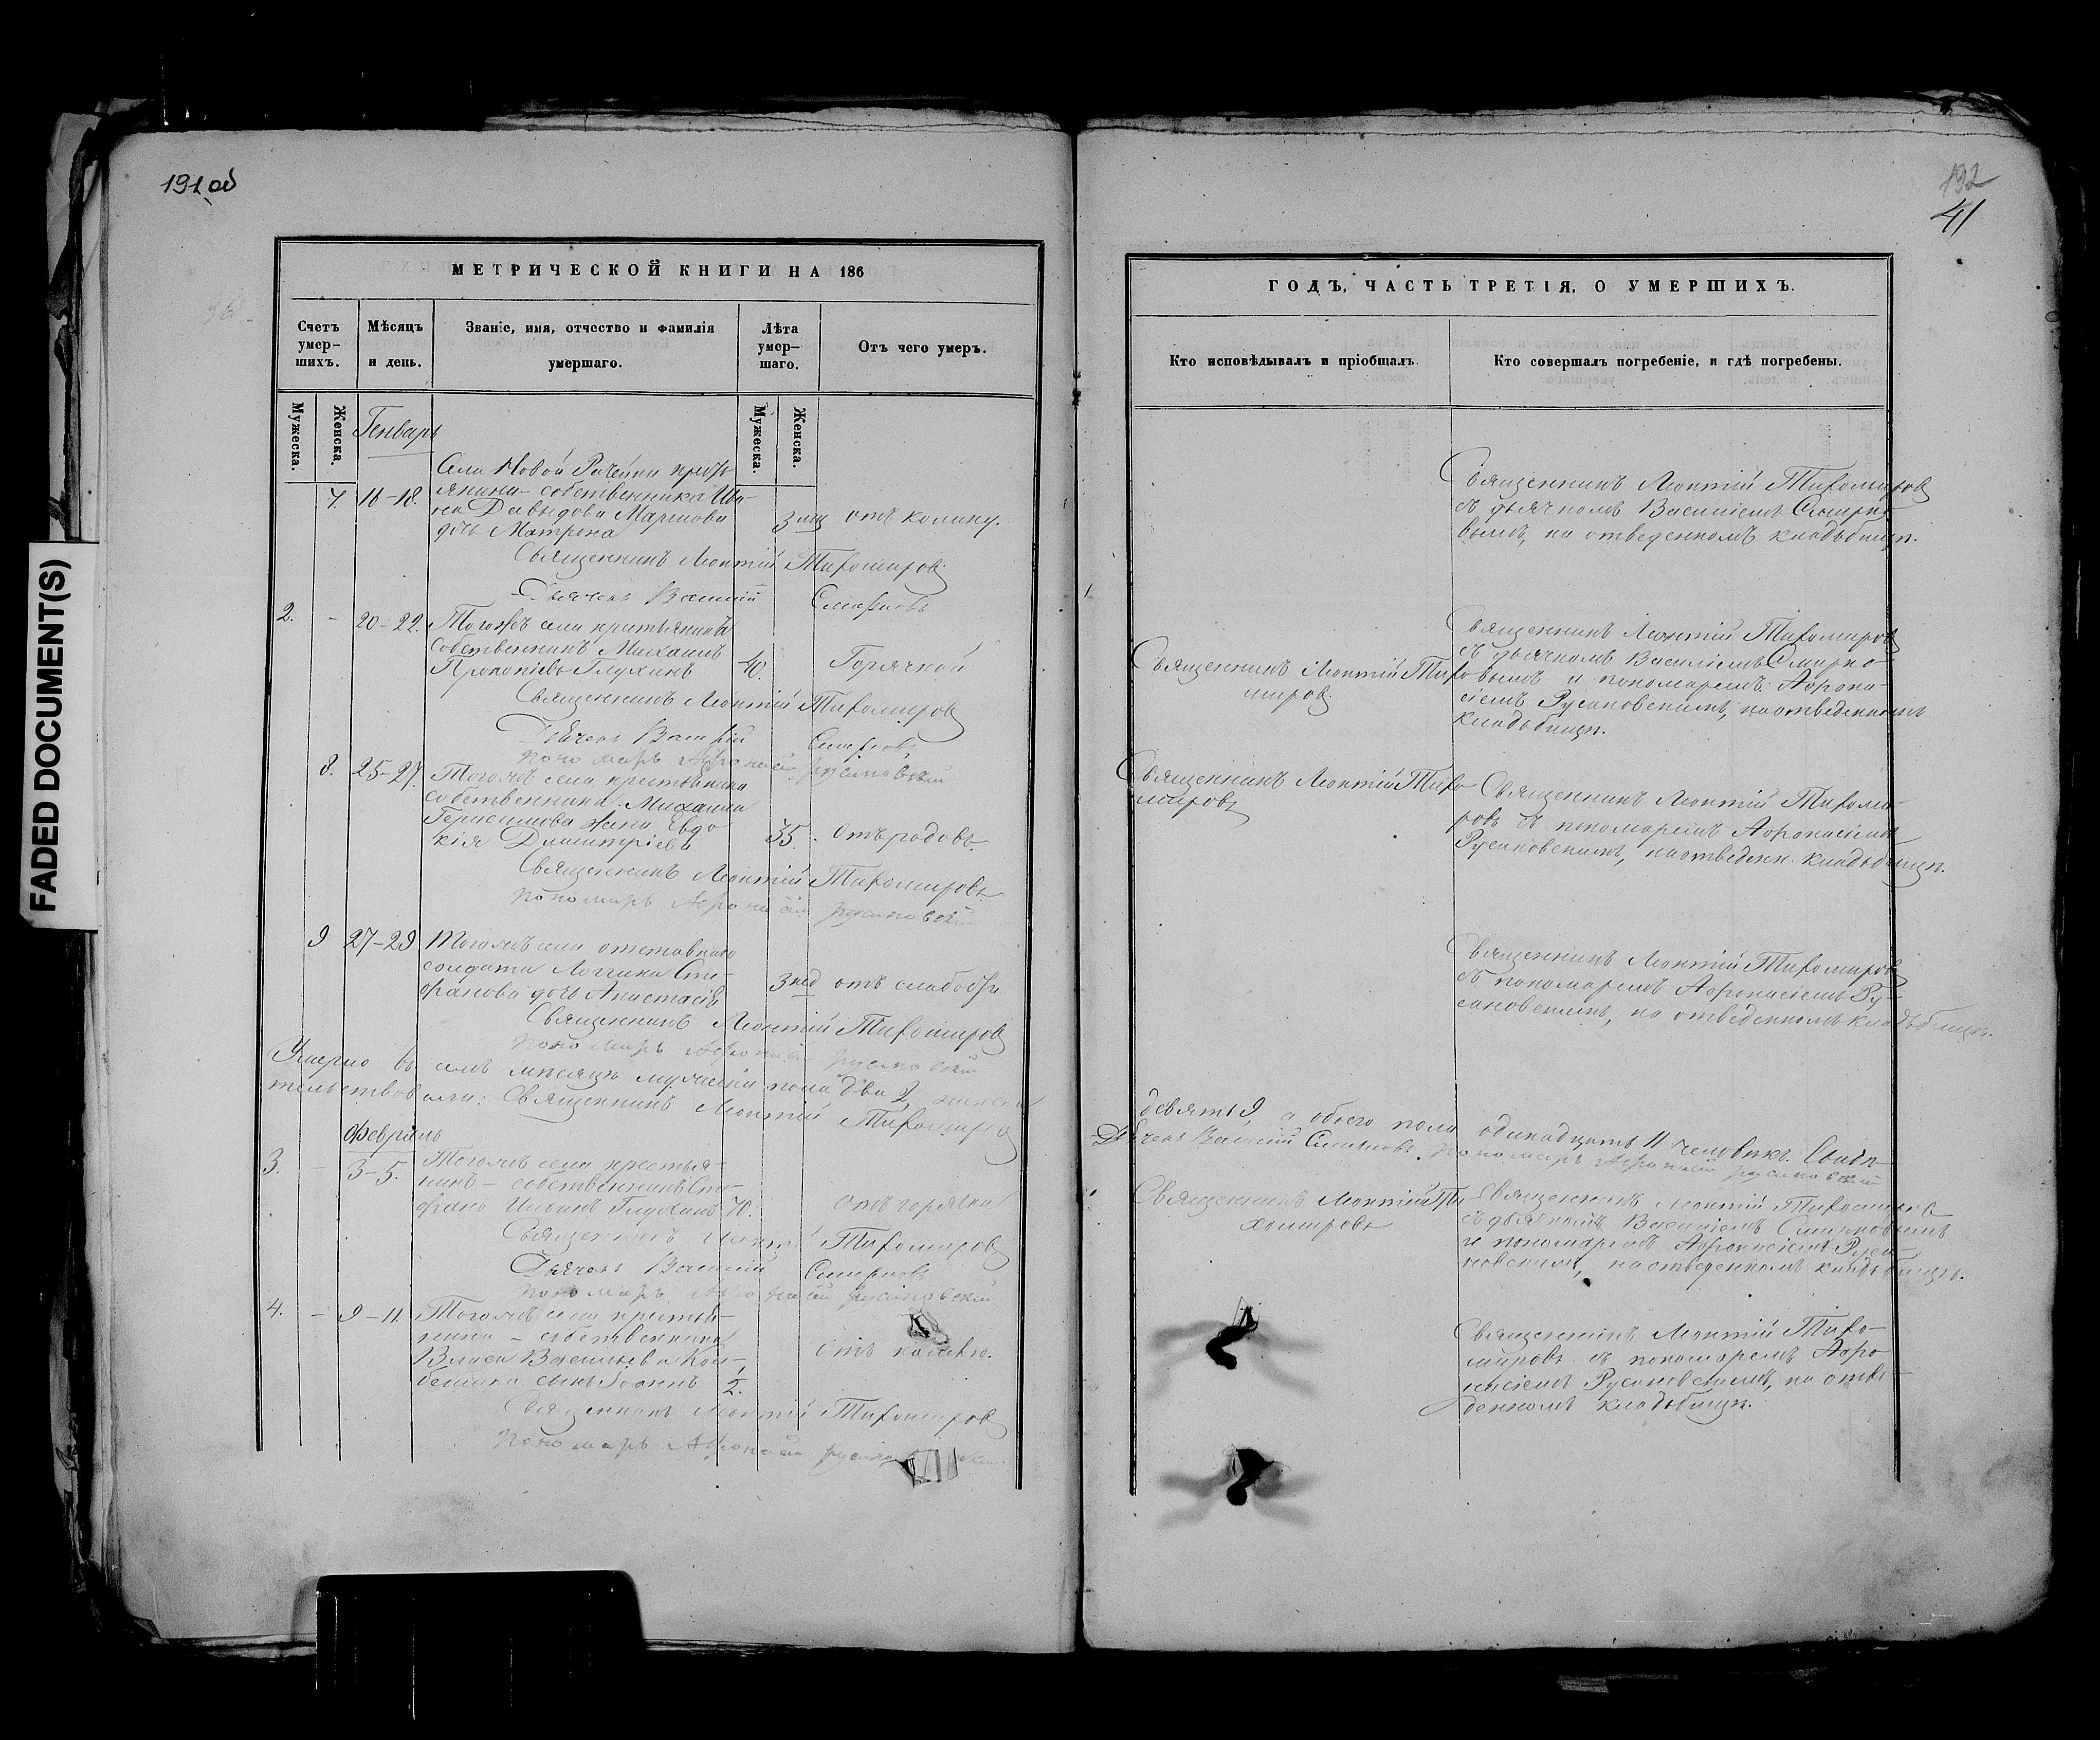 191 об
192
41
FADED DOCUMENT(S)
МЕТРИЧЕСКОЙ КНИГИ НА 186
Счетъ умер-шихъ.
Мѣсяцъ и день.
Званіе, имя, отчество и фамилія умершаго.
Лѣта умер-шаго.
Отъ чего умеръ.
Мужеска.
Женска.
Мужеска.
Женска.
Генварь
Села Новой Рачейки кресть-
7. 16-18. янина-собственника Ива-
на Давыдова Маршова
дочь Матрона 3 мѣс отъ колику.
Священникъ Леонтій Тихомировъ
Дьячекъ Василій Смирновъ
2. - 20-22. Тогожъ села крестьянинъ
собственникъ Михаилъ
Прокопіевъ Глухинъ 40. Горячкой
Священникъ Леонтій Тихомировъ
Дьячекъ Василій Смирновъ
пономарь Афонасій Русановскій
8. 25-27. Тогожъ села крестьянина
собственника Михаила
Герасимова жена Евдо-
кія Димитріева 35. отъ родовъ.
Священникъ Леонтій Тихомировъ
пономарь Афонасій Русановскій
9 27-29 Тогожъ села отставнаго
солдата Логгина Сте-
фанова дочь Анастасія 3 нед отъ слабости
Священникъ Леонтій Тихомировъ
пономарь Афонасій Русановскій
Умерло въ семъ мѣсяцѣ мужеска пола два 2, женска
тельствовали: Священникъ Леонтій Тихомировъ
Февраль
3. - 3-5. Тогожъ села крестья-
нинъ-собственникъ Сте-
фанъ Ильинъ Глухинъ 70. отъ горячки
Священникъ Леонтій Тихомировъ
Дьячекъ Василій Смирновъ
пономарь Афонасій Русановскій
4. - 9-11. Тогожъ села крестья-
нина-собственника
Власа Васильева
сынъ Іоаннъ 1/2.
Священникъ Леонтій Тихомировъ
пономарь Афонасій
ГОДЪ, ЧАСТЬ ТРЕТІЯ, О УМЕРШИХЪ.
Кто исповѣдывалъ и пріобщалъ.
Кто совершалъ погребеніе, и гдѣ погребены.
Священникъ Леонтій Тихомировъ
съ дьячкомъ Василіемъ Смирно-
вымъ, на отведенномъ кладбищѣ.
Священникъ Леонтій Тихо-
мировъ.
Священникъ Леонтій Тихомировъ
съ дьячкомъ Василіемъ Смирно-
вымъ и пономаремъ Афона-
сіемъ Русановскимъ, на отведенномъ
кладбищѣ.
Священникъ Леонтій Тихо-
мировъ
Священникъ Леонтій Тихоми-
ровъ съ пономаремъ Афонасіемъ
Русановскимъ, на отведенн. кладбищѣ.
Священникъ Леонтій Тихомировъ
съ пономаремъ Афонасіемъ Ру-
сановскимъ, на отведенномъ кладбищѣ.
девять 9, а обоего пола одинадцать 11 человѣкъ. Свидѣ-
Дьячекъ Василій Смирновъ. пономарь Афонасій Русановскій
Священникъ Леонтій Ти-
хомировъ
Священникъ Леонтій Тихомировъ
съ дьячкомъ Василіемъ Смирновымъ
и пономаремъ Афонасіемъ Руса-
новскимъ, на отведенномъ кладбищѣ.
Священникъ Леонтій Тихо-
мировъ съ пономаремъ Афо-
насіемъ Русановскимъ, на отве-
денномъ кладбищѣ.